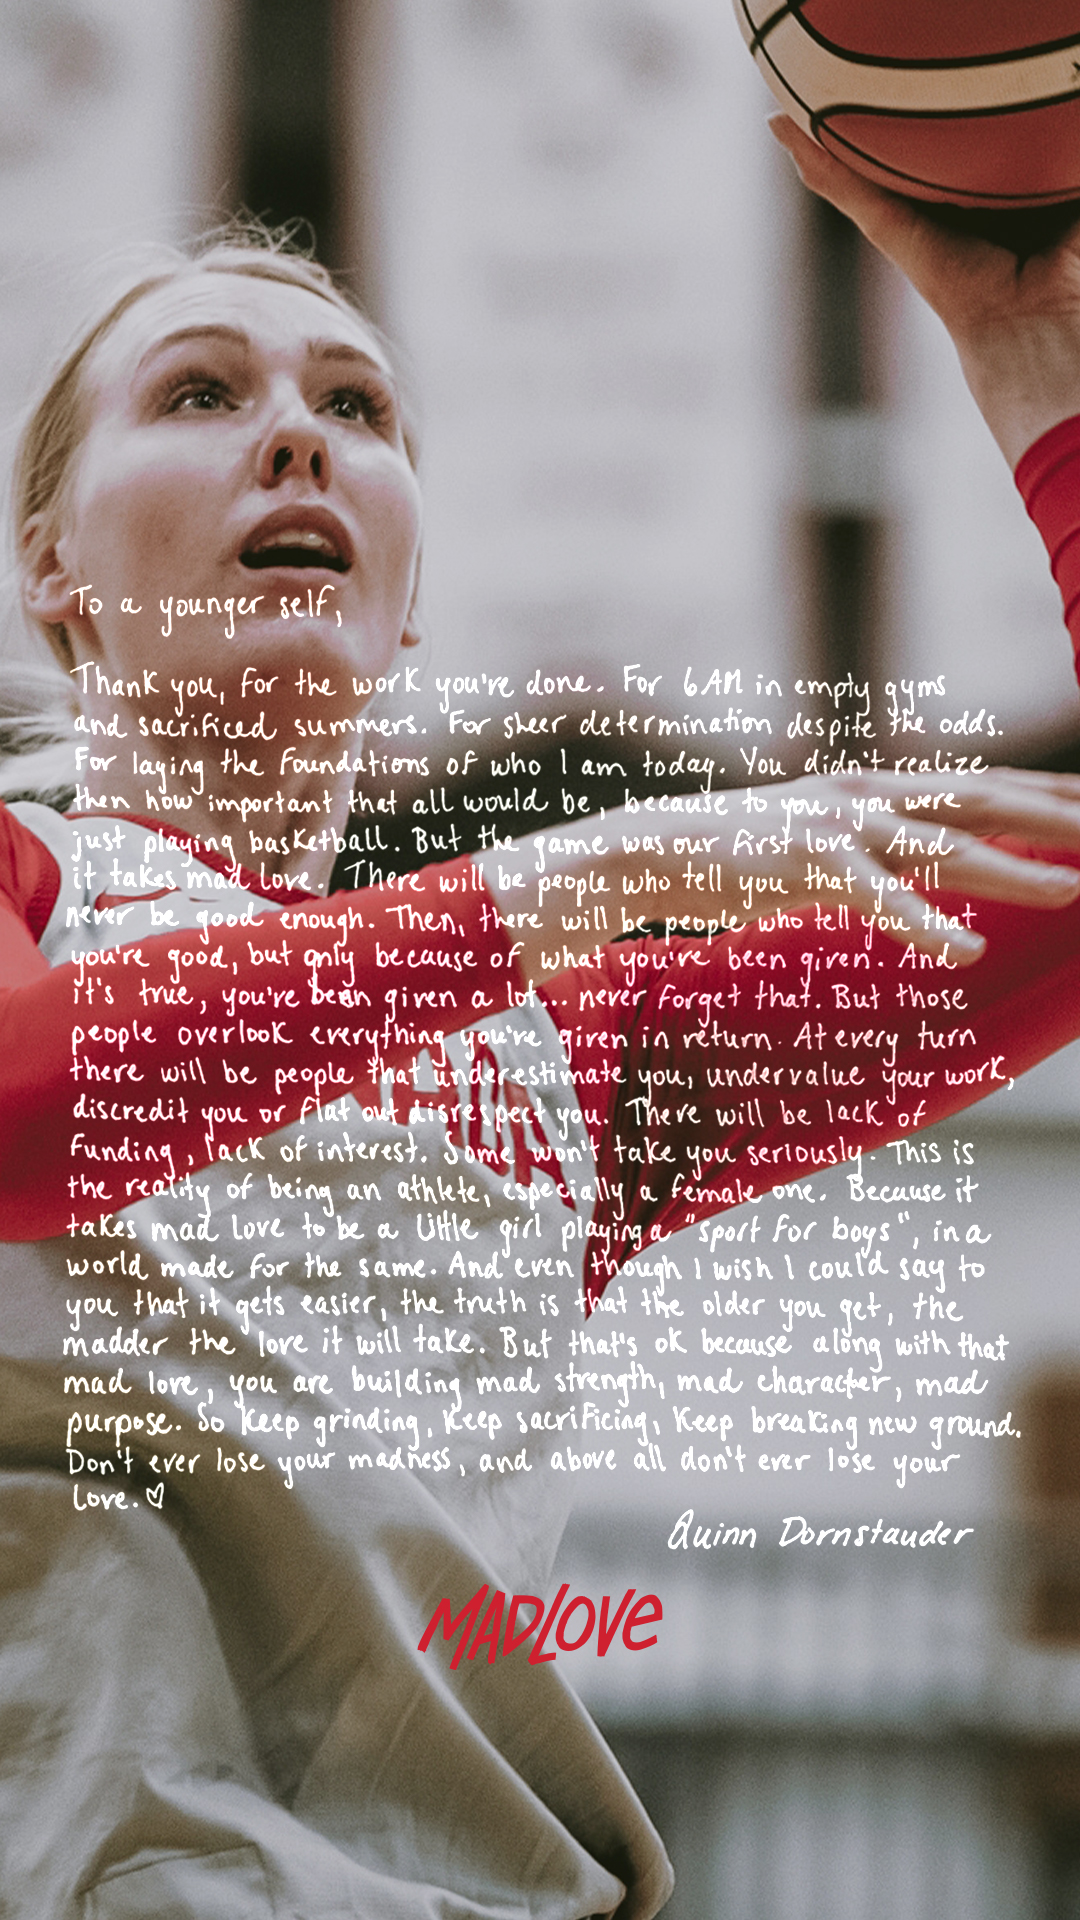 To a younger self,
Thank you, for the work you're done. For 6AM in empty gyms
and sacrificed summers. For sheer determination despite the odds.
For laying the foundations of who I am today. You didn't realize
then how important that all would be, because to you, you were
just playing basketball. But the game was our first love. And
it takes mad love. There will be people who tell you that you'll
never be good enough. Then, there will be people who tell you that
you're good, but only because of what you've been given. And
it's true, you're been given a lot... never forget that. But those
people overlook everything you've given in return. At every turn
there will be people that underestimate you, undervalue your work,
discredit you or flat out disrespect you. There will be lack of
funding, lack of interest. Some won't take you seriously. This is
the reality of being an athlete, especially a female one. Because it
takes mad love to be a little girl playing a "sport for boys", in a
world made for the same. And even though I wish I could say to
you that it gets easier, the truth is that the older you get, the
madder the love it will take. But that's ok because along with that
mad love, you are building mad strength, mad character, mad
purpose. So keep grinding, keep sacrificing, keep breaking new ground.
Don't ever lose your madness, and above all don't ever lose your
love. ♡
Quinn Dornstauder
MADLOVE